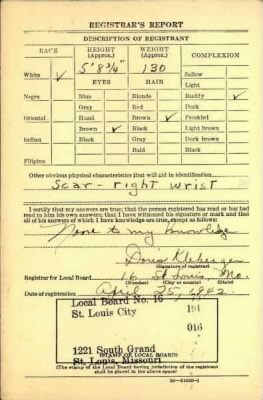 REGISTRAR'S REPORT
DESCRIPTION OF REGISTRANT
RACE HEIGHT (Approx.) WEIGHT (Approx.) COMPLEXION
White ✓ 5' 8 3/4" 130 Sallow
EYES HAIR Light
Negro Blue Blonde Ruddy ✓
Gray Red Dark
Oriental Hazel Brown ✓ Freckled
Brown ✓ Black Light brown
Indian Black Gray Dark brown
Bald Black
Filipino
Other obvious physical characteristics that will aid in identification
Scar - right wrist
I certify that my answers are true; that the person registered has read or has had
read to him his own answers; that I have witnessed his signature or mark and that
all of his answers of which I have knowledge are true, except as follows:
None to my knowledge
Doris
(Signature of registrar)
Registrar for Local Board 16 St. Louis, Mo.
(Number) (City or county) (State)
Date of registration April 25, 1942
Local Board No. 16
St. Louis City 191
016
1221 South Grand
(STAMP OF LOCAL BOARD)
St. Louis, Missouri
(The stamp of the Local Board having jurisdiction of the registrant
shall be placed in the above space)